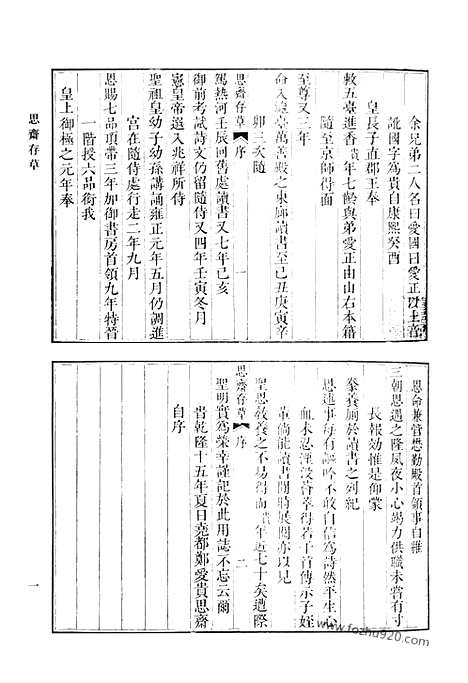 余兄弟二人名曰愛國曰愛正以土音
訛國子為貴自康熙癸酉
皇長子直郡王奉
敕五臺進香 年七齡與弟愛正由山右本籍
隨至京師得面
至尊又三年
命入 臺萬善殿之東廊讀書至己丑庚寅辛
卯三次隨
思齋存草 序 一
駕熱河壬辰回舊處讀書又七年己亥
御前考試詩文仍留隨侍又四年壬寅冬月
憲皇帝選入兆祥所侍
聖祖皇幼子幼孫講誦雍正元年五月仍調進
宮在隨侍處行走二年九月
恩賜七品頂帶三年加御書房首領九年特晉
一階授六品銜我
皇上御極之元年奉
恩命兼管懋勤殿首領事自維
三朝恩遇之隆夙夜小心竭力供職未嘗有寸
長報効惟是仰蒙
豢養廁於讀書之列紀
恩述事每有謳吟不敢自信為詩然平生心
血未忍湮沒薈萃得若干首傳示子姪
輩倘能讀書閒時展閱亦以見
思齋存草 序 二
聖恩教養之不易得而 年近七十矣遭際
聖明實為榮幸謹記於此用誌不忘云爾
旹乾隆十五年夏日堯都鄭愛貴思齋
自序
思齋存草
一
www.fozhu920.com